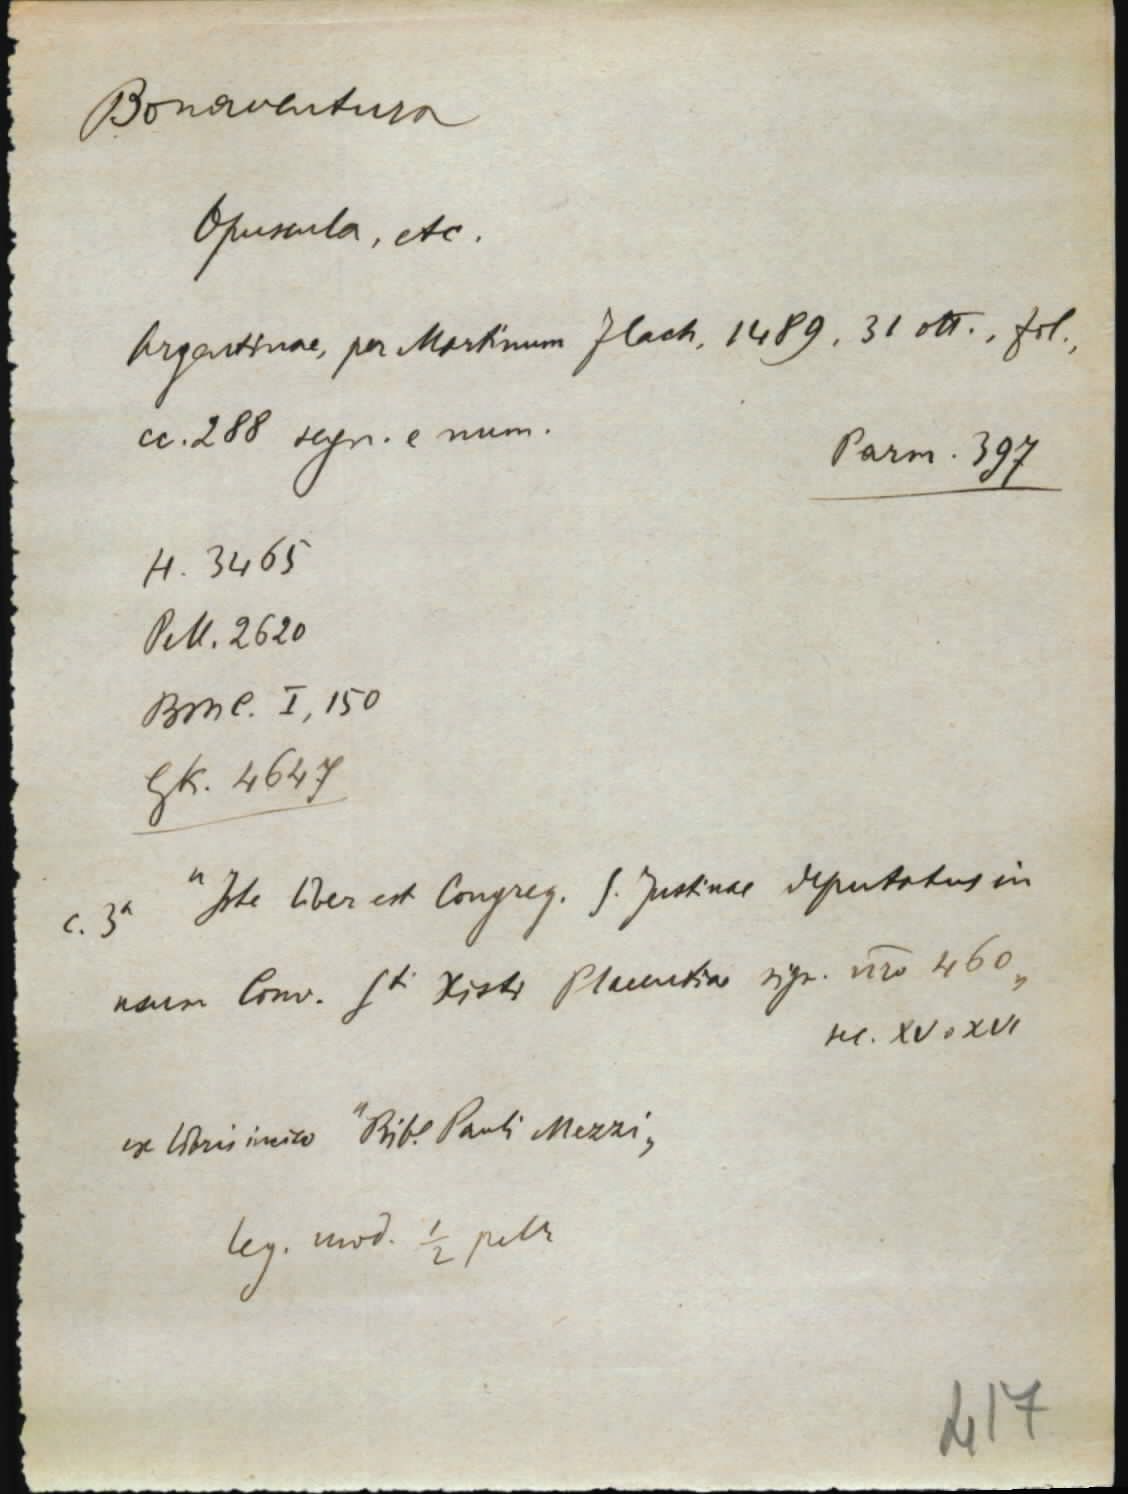 Bonaventura
Opuscula, etc.
Argentinae, per Martinum Flach, 1489, 31 ott., fol.,
cc. 288 segn. e num.
Parm. 397
H. 3465
Pell. 2620
BMC. I, 150
GK. 4647
c. 3ª "Iste liber est Congreg. S. Justinae deputatus in
usum Conv. Sti Xisti Placentiae sign. nro 460„
sec. XV o XVI
ex libris inciso "Bibl. Pauli Mezzi„
leg. mod. 1/2 pelle
417